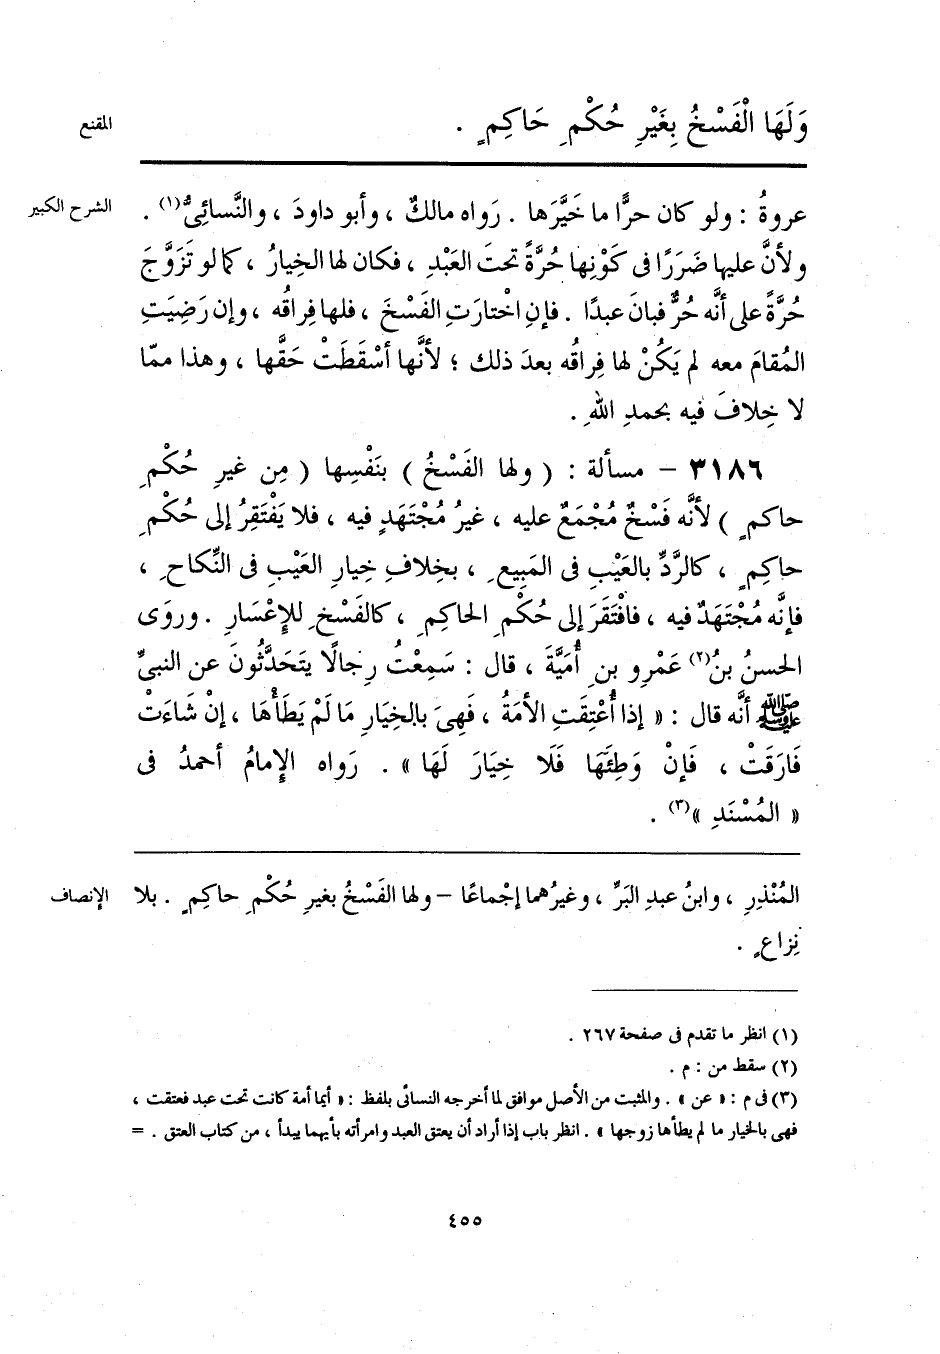 وَلَهَا الْفَسْخُ بِغَيْرِ حُكْمِ حَاكِمٍ .
المقنع
عروةُ : ولو كان حرًّا ما خَيَّرَها . رَواه مالكٌ ، وأبو داودَ ، والنَّسائِىُّ(١) .
الشرح الكبير
ولأنَّ عليها ضَرَرًا فى كَوْنِها حُرَّةً تحتَ العَبْدِ ، فكان لها الخِيارُ ، كما لو تَزَوَّجَ
حُرَّةً على أنَّه حُرٌّ فبانَ عبدًا . فإنِ اخْتارَتِ الفَسْخَ ، فلها فِراقُه ، وإن رَضِيَتِ
المُقامَ معه لم يَكُنْ لها فِراقُه بعدَ ذلك ؛ لأنَّها أسْقَطَتْ حَقَّها ، وهذا ممّا
لا خِلافَ فيه بحمدِ اللهِ .
٣١٨٦ – مسألة : ( ولها الفَسْخُ ) بنَفْسِها ( مِن غيرِ حُكْمِ
حاكمٍ ) لأنَّه فَسْخٌ مُجْمَعٌ عليه ، غيرُ مُجْتَهَدٍ فيه ، فلا يَفْتَقِرُ إلى حُكْمِ
حاكِمٍ ، كالرَّدِّ بالعَيْبِ فى المَبِيعِ ، بخِلافِ خِيارِ العَيْبِ فى النِّكاحِ ،
فإنَّه مُجْتَهَدٌ فيه ، فافْتَقَرَ إلى حُكْمِ الحاكِمِ ، كالفَسْخِ للإعْسَارِ . وروَى
الحسنُ بنُ(٢) عَمْرِو بنِ أُمَيَّةَ ، قال : سَمِعْتُ رِجالًا يتَحَدَّثُونَ عن النبىِّ
ﷺ أنَّه قال : « إذا أُعْتِقَتِ الأمَةُ ، فَهِىَ بالخِيَارِ مَا لَمْ يَطَأْهَا ، إنْ شَاءَتْ
فَارَقَتْ ، فَإنْ وَطِئَهَا فَلَا خِيَارَ لَهَا » . رَواه الإمامُ أحمدُ فى
« المُسْنَدِ »(٣) .
المُنْذِرِ ، وابنُ عبدِ البَرِّ ، وغيرُهما إجْماعًا – ولها الفَسْخُ بغيرِ حُكْمِ حاكِمٍ . بلا
الإنصاف
نِزاعٍ .
(١) انظر ما تقدم فى صفحة ٢٦٧ .
(٢) سقط من : م .
(٣) فى م : « عن » . والمثبت من الأصل موافق لما أخرجه النسائى بلفظ : « أيما أمة كانت تحت عبد فعتقت ،
فهى بالخيار ما لم يطأها زوجها » . انظر باب إذا أراد أن يعتق العبد وامرأته بأيهما يبدأ ، من كتاب العتق . =
٤٥٥